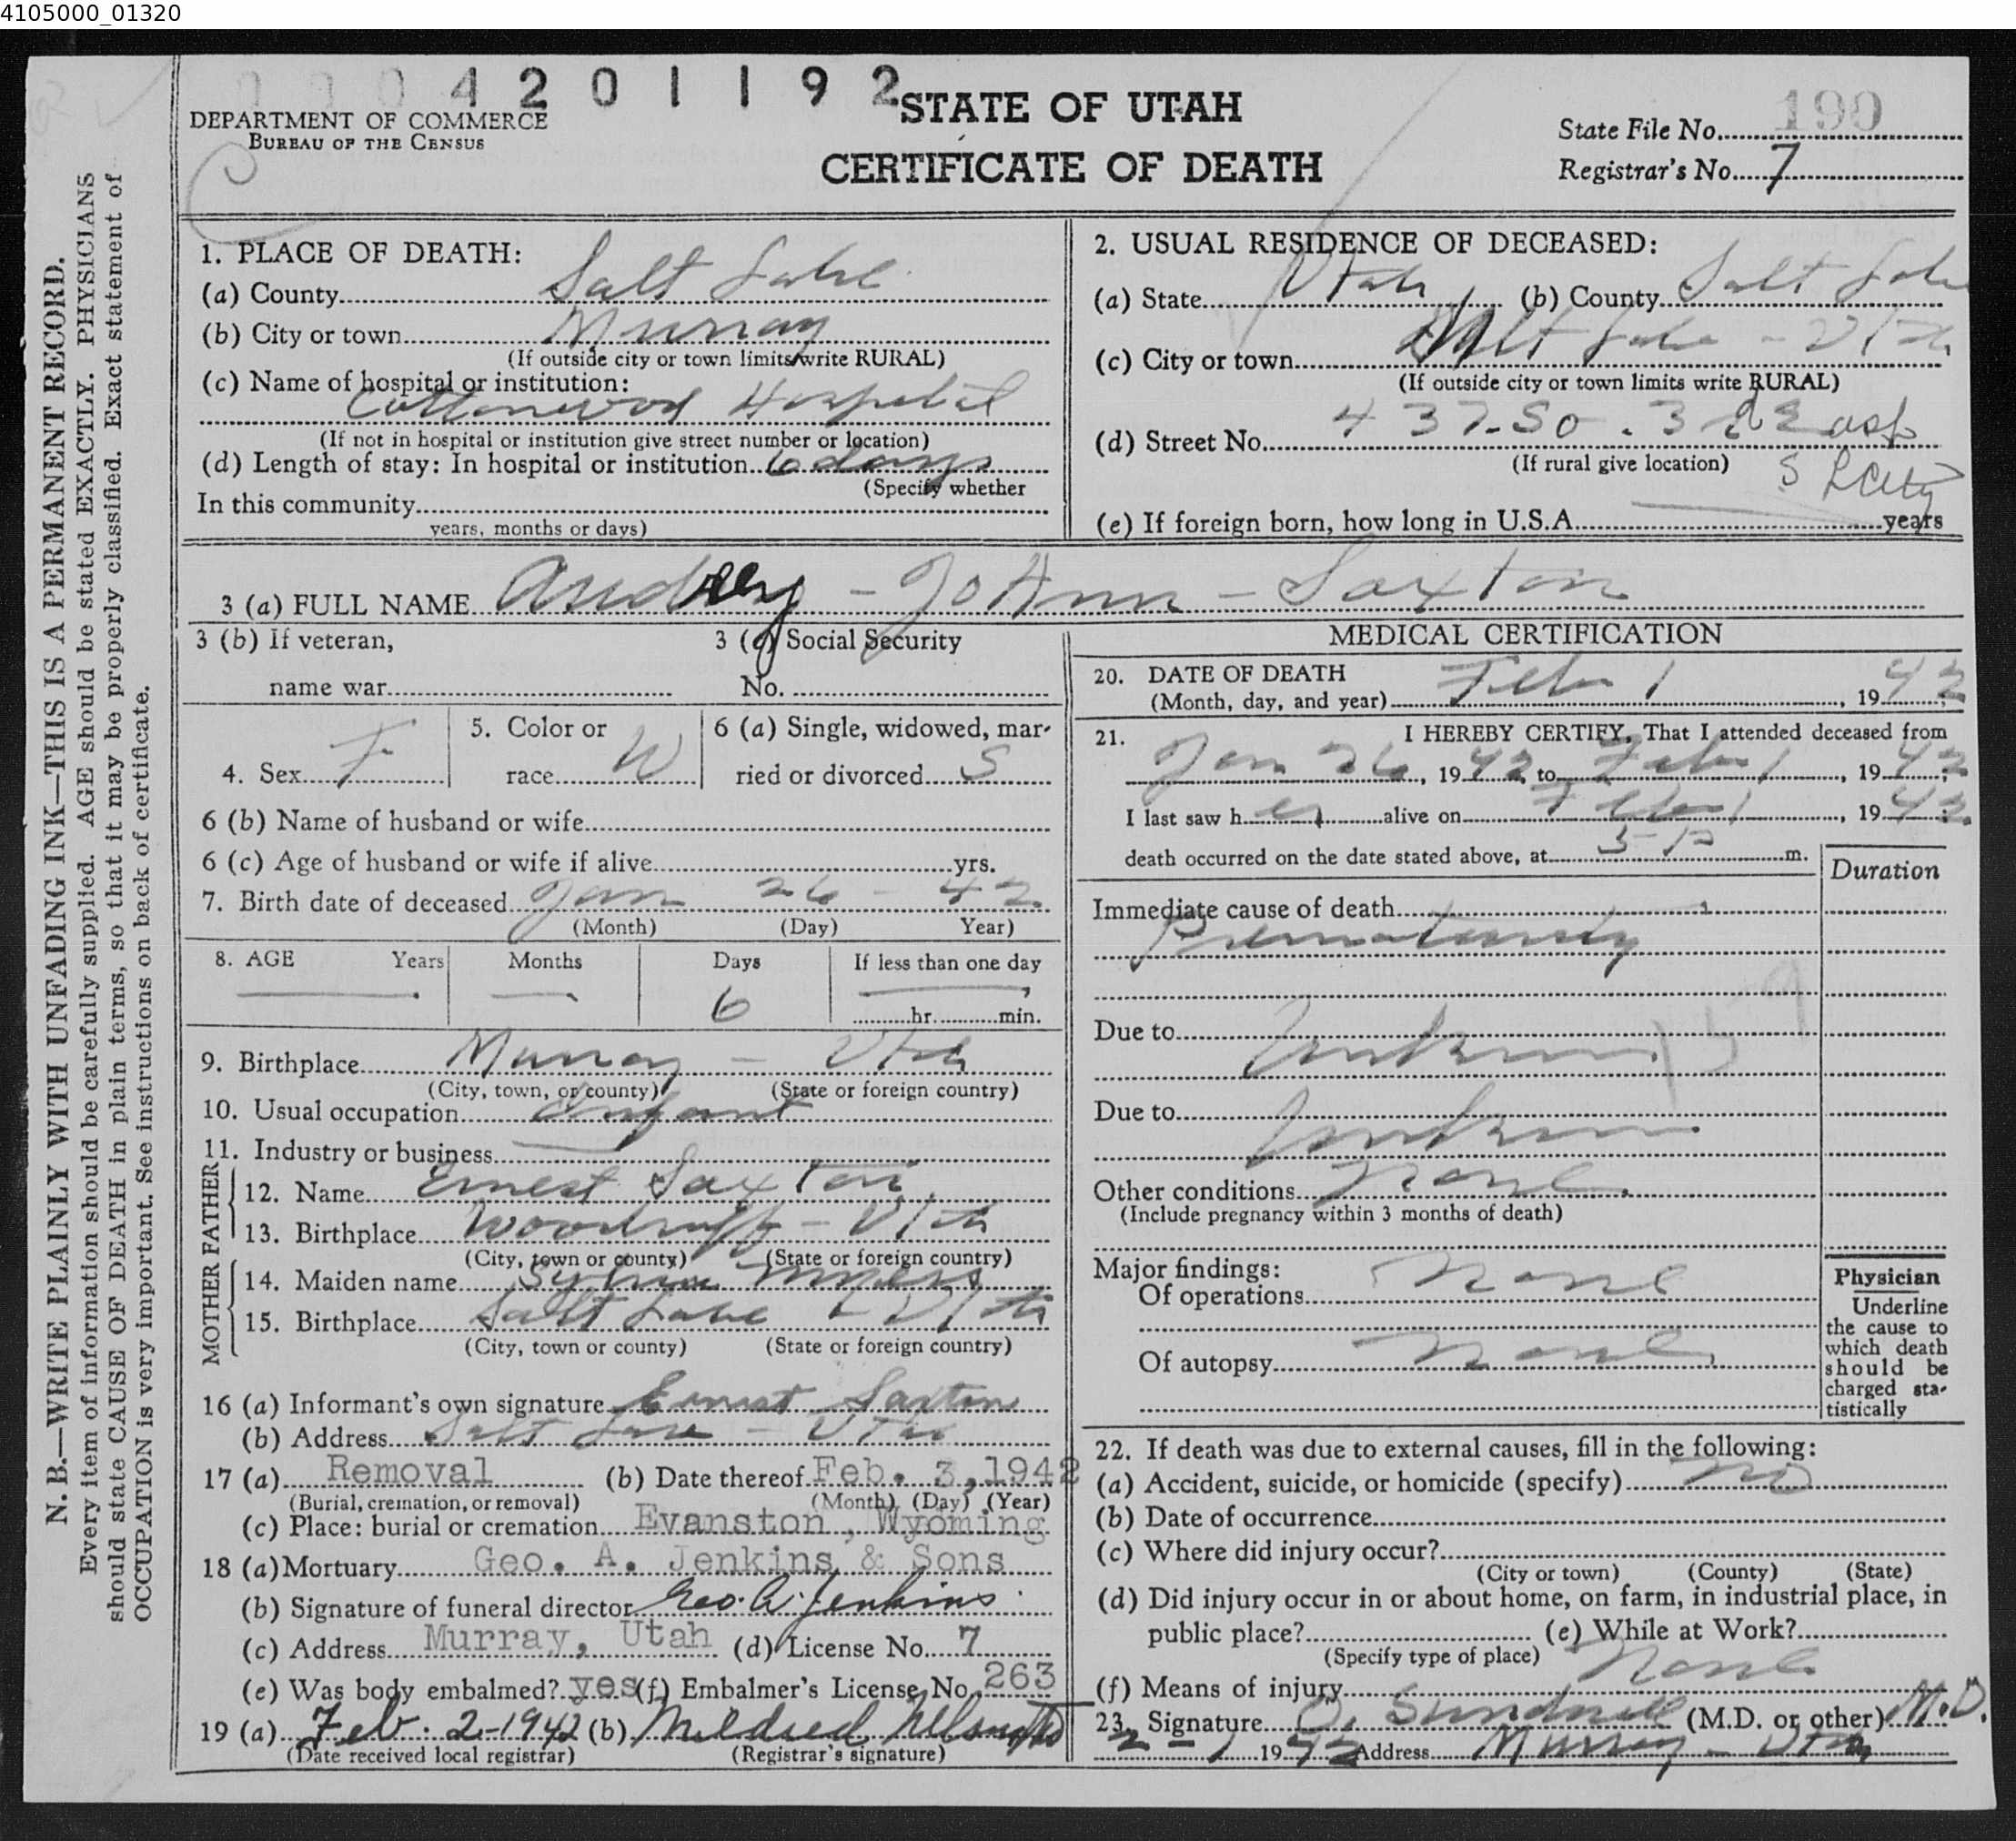 4105000_01320
0004201192
DEPARTMENT OF COMMERCE
BUREAU OF THE CENSUS
STATE OF UTAH
CERTIFICATE OF DEATH
State File No. 190
Registrar's No. 7
N. B.—WRITE PLAINLY WITH UNFADING INK—THIS IS A PERMANENT RECORD.
Every item of information should be carefully supplied. AGE should be stated EXACTLY. PHYSICIANS
should state CAUSE OF DEATH in plain terms, so that it may be properly classified. Exact statement of
OCCUPATION is very important. See instructions on back of certificate.
1. PLACE OF DEATH:
(a) County Salt Lake
(b) City or town Murray
(If outside city or town limits write RURAL)
(c) Name of hospital or institution:
Cottonwood Hospital
(If not in hospital or institution give street number or location)
(d) Length of stay: In hospital or institution 6 days
(Specify whether
In this community
years, months or days)
2. USUAL RESIDENCE OF DECEASED:
(a) State Utah (b) County Salt Lake
(c) City or town Salt Lake - Utah
(If outside city or town limits write RURAL)
(d) Street No. 437 - So. 3rd East
(If rural give location) S L City
(e) If foreign born, how long in U.S.A. years
3 (a) FULL NAME Audrey - JoAnn - Saxton
3 (b) If veteran,
name war
3 (c) Social Security
No.
4. Sex F
5. Color or
race W
6 (a) Single, widowed, mar-
ried or divorced S
6 (b) Name of husband or wife
6 (c) Age of husband or wife if alive yrs.
7. Birth date of deceased Jan 26 - 42
(Month) (Day) Year)
8. AGE Years Months Days If less than one day
6 hr. min.
9. Birthplace Murray - Utah
(City, town, or county) (State or foreign country)
10. Usual occupation Infant
11. Industry or business
FATHER
12. Name Ernest Saxton
13. Birthplace Woodruff - Utah
(City, town or county) (State or foreign country)
MOTHER
14. Maiden name
15. Birthplace Salt Lake - Utah
(City, town or county) (State or foreign country)
16 (a) Informant's own signature Ernest Saxton
(b) Address Salt Lake - Utah
17 (a) Removal (b) Date thereof Feb. 3, 1942
(Burial, cremation, or removal) (Month) (Day) (Year)
(c) Place: burial or cremation Evanston, Wyoming
18 (a) Mortuary Geo. A. Jenkins & Sons
(b) Signature of funeral director Geo. A. Jenkins
(c) Address Murray, Utah (d) License No. 7
(e) Was body embalmed? yes (f) Embalmer's License No. 263
19 (a) Feb. 2-1942 (b) Mildred
(Date received local registrar) (Registrar's signature)
MEDICAL CERTIFICATION
20. DATE OF DEATH
(Month, day, and year) Feb 1, 1942
21. I HEREBY CERTIFY, That I attended deceased from
Jan 26, 1942 to Feb 1, 1942
I last saw her alive on Feb 1, 1942
death occurred on the date stated above, at 5 P m.
Duration
Immediate cause of death
Prematurity
Due to Unknown
159
Due to Unknown
Other conditions None
(Include pregnancy within 3 months of death)
Major findings:
Of operations None
Of autopsy None
Physician
Underline
the cause to
which death
should be
charged sta-
tistically
22. If death was due to external causes, fill in the following:
(a) Accident, suicide, or homicide (specify) No
(b) Date of occurrence
(c) Where did injury occur?
(City or town) (County) (State)
(d) Did injury occur in or about home, on farm, in industrial place, in
public place? (e) While at Work?
(Specify type of place)
(f) Means of injury None
23. Signature (M.D. or other) M.D.
2 - 1 1942 Address Murray - Utah